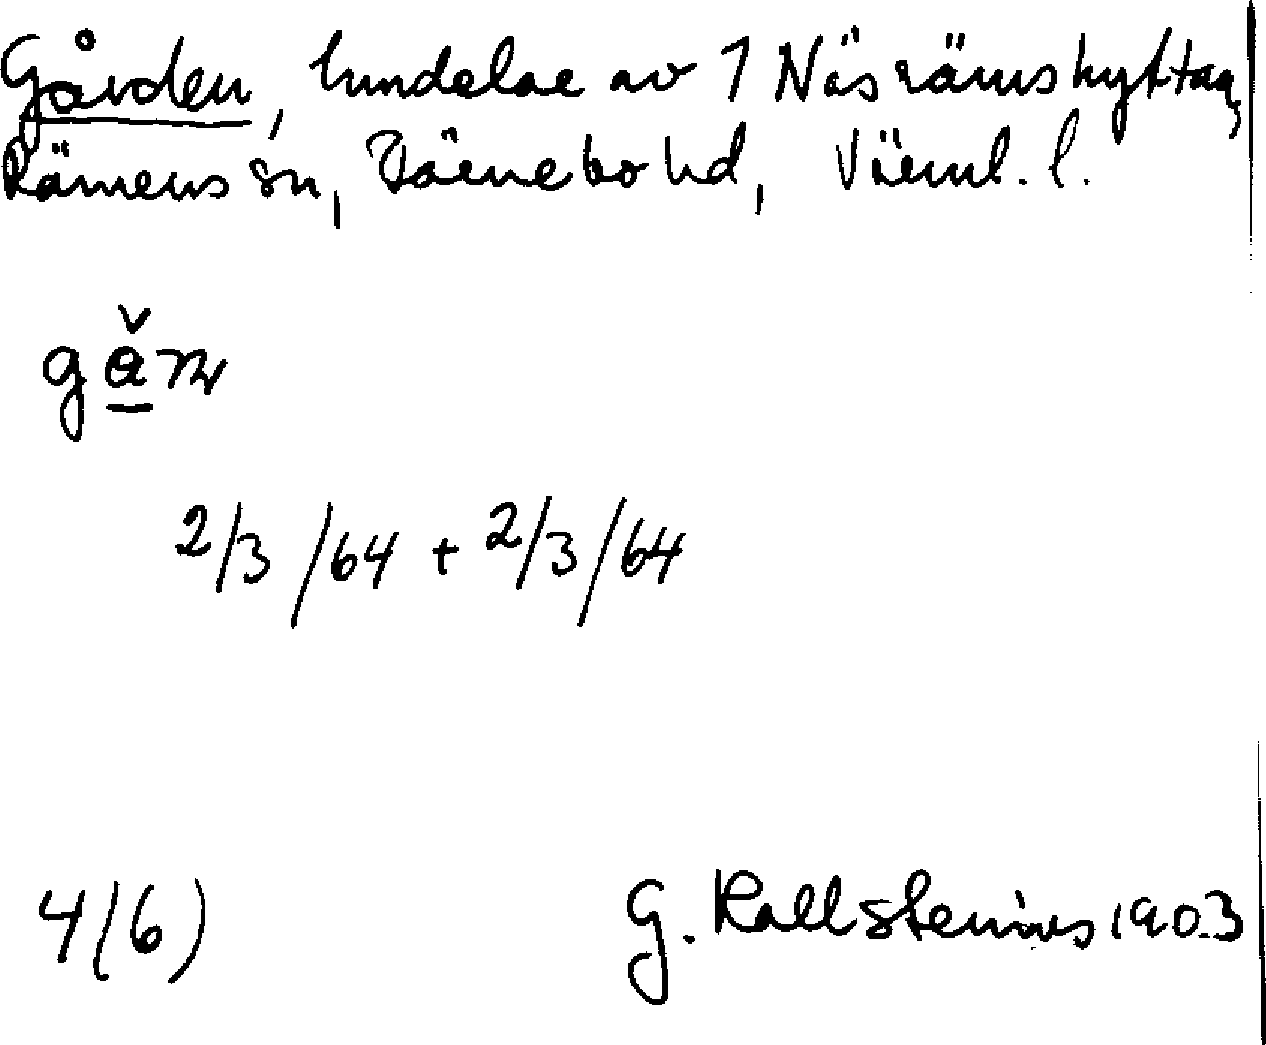 Gården, hemdelar av 1 Näsrämshyttan,
Rämens sn, Färnebo hd, Värml. l.
2/3 /64 + 2/3/64
4(6)
G. Kallstenius 1903